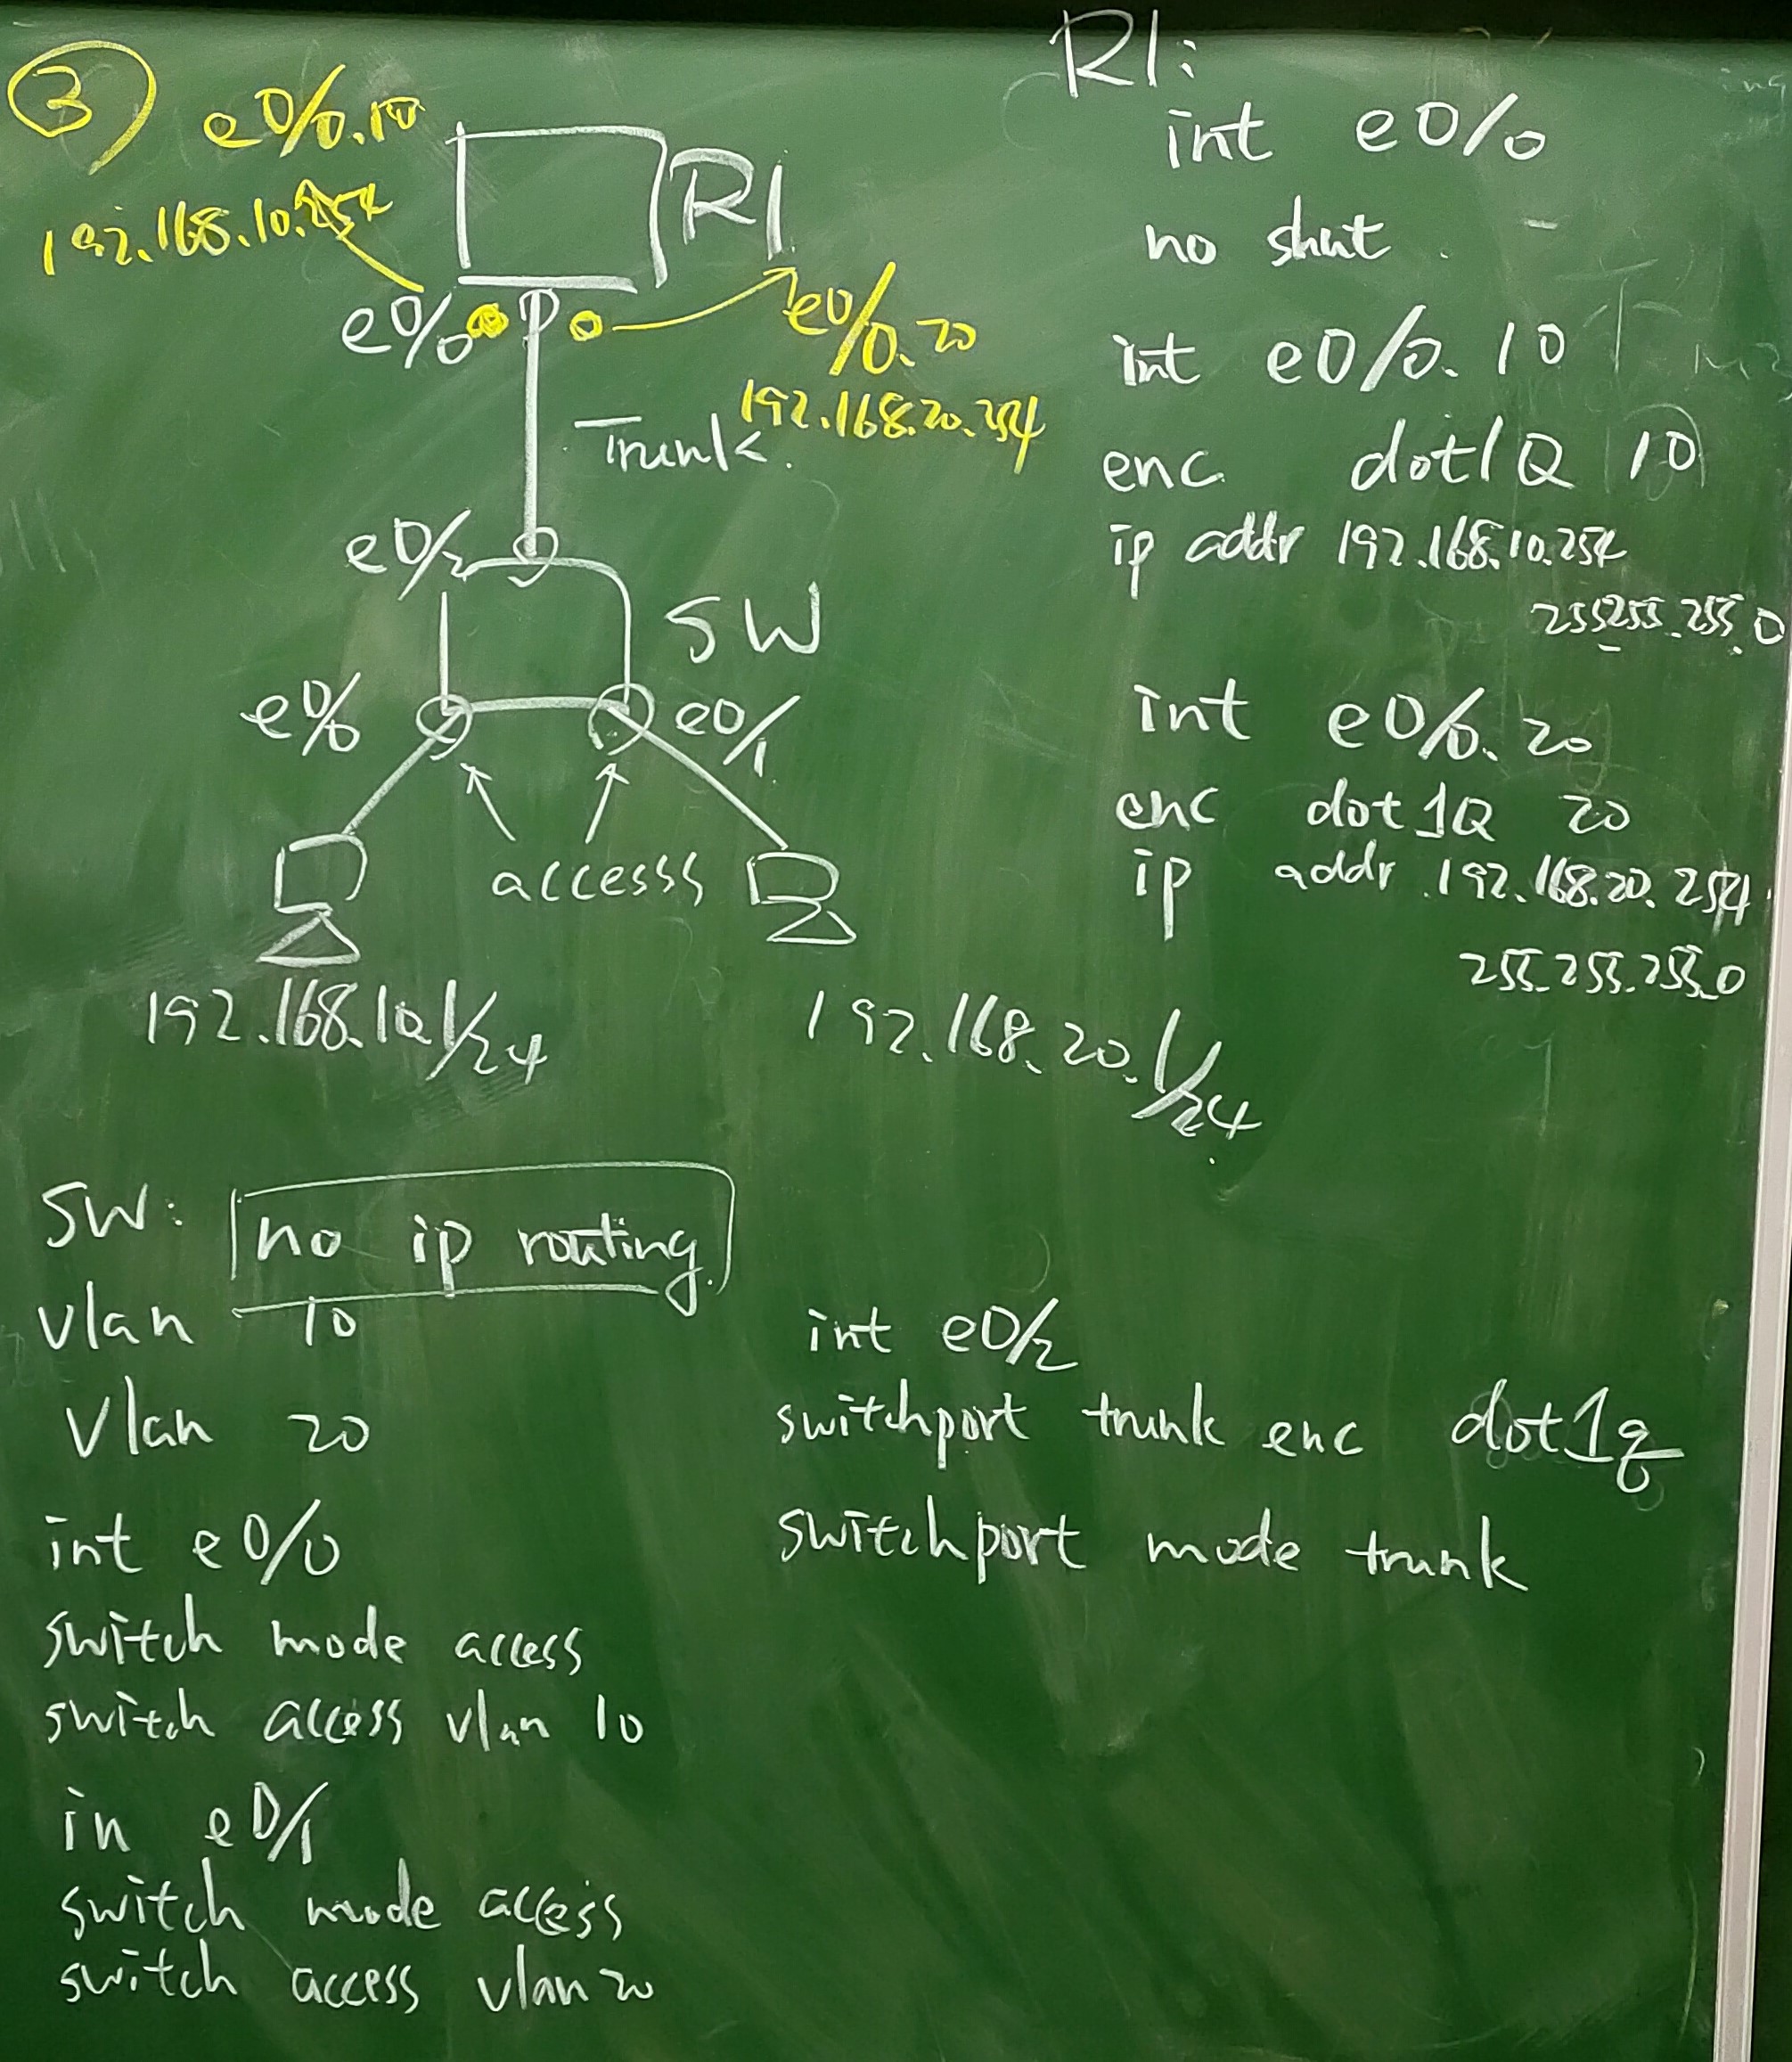 3
e0/0.10
192.168.10.254
R1
e0/0
e0/0.20
192.168.20.254
Trunk.
e0/2
SW
e0/0
e0/1
accesss
192.168.10.1/24
192.168.20.1/24
R1:
int e0/0
no shut
int e0/0.10
enc dot1Q 10
ip addr 192.168.10.254
255255.255.0
int e0/0.20
enc dot1Q 20
ip addr 192.168.20.254
255.255.255.0
SW: no ip routing
vlan 10
vlan 20
int e0/0
switch mode access
switch access vlan 10
in e0/1
switch mode access
switch access vlan 20
int e0/2
switchport trunk enc dot1q
switchport mode trunk